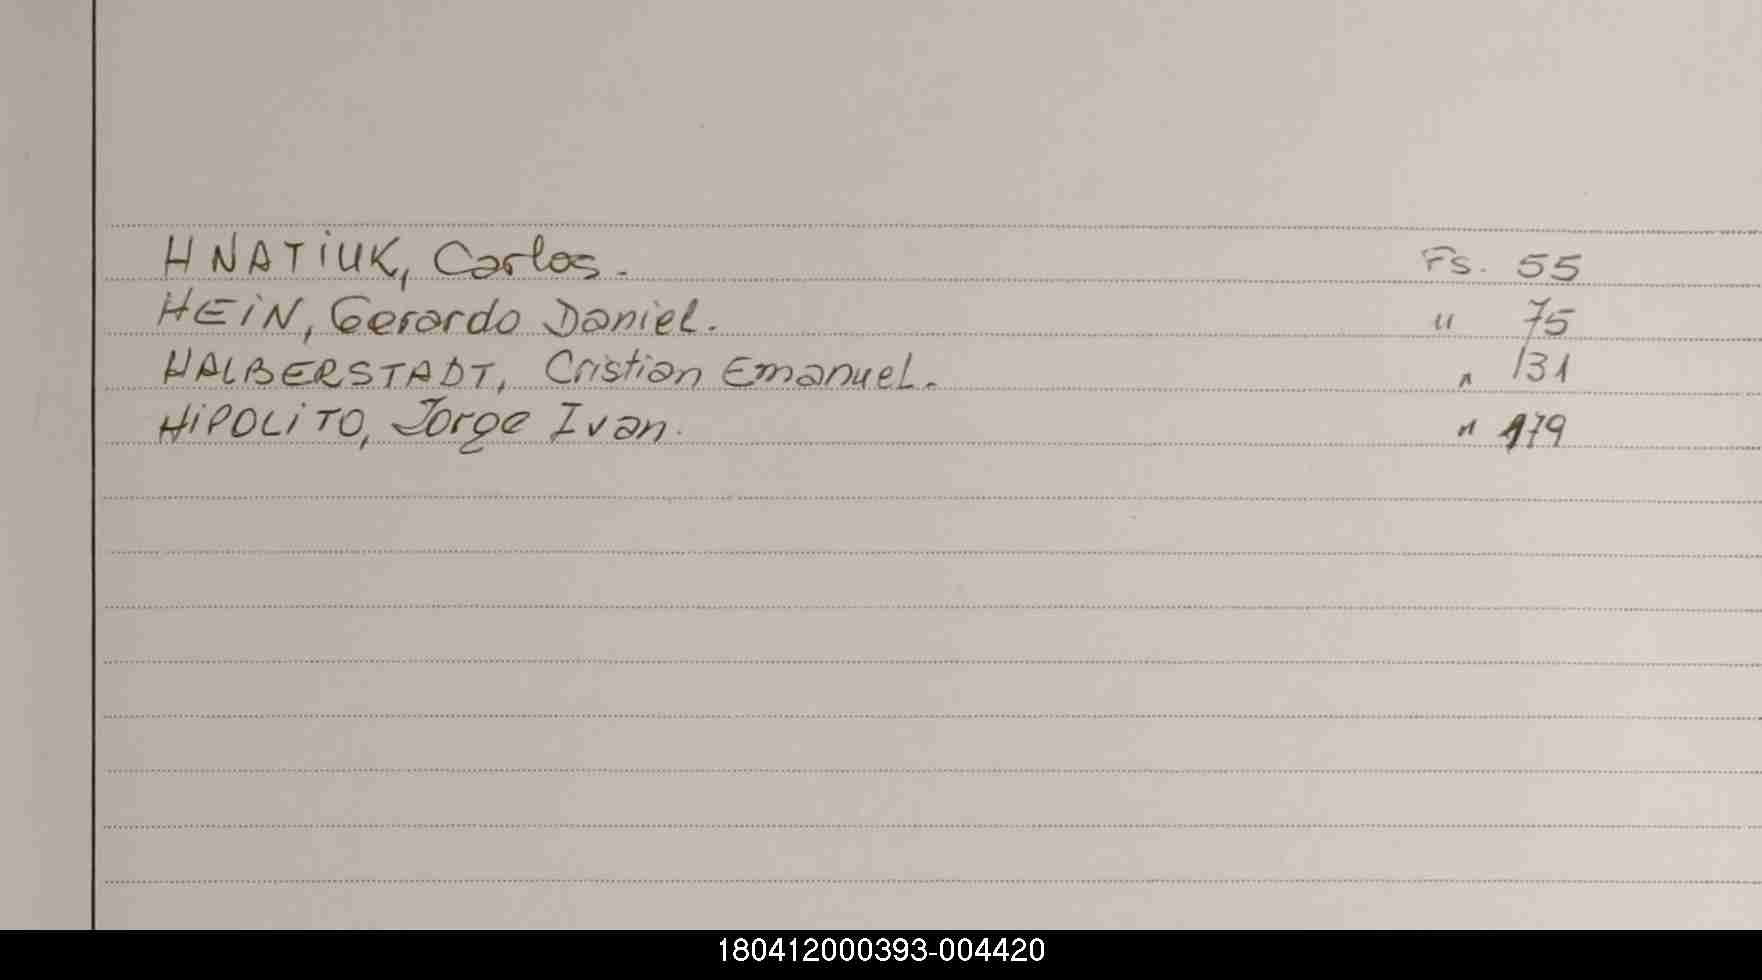 HNATiUK, Carlos. Fs. 55
HEiN, Gerardo Daniel. " 75
HALBERSTADT, Cristian Emanuel. " 131
HiPOLiTO, Jorge Ivan. " 179
180412000393-004420